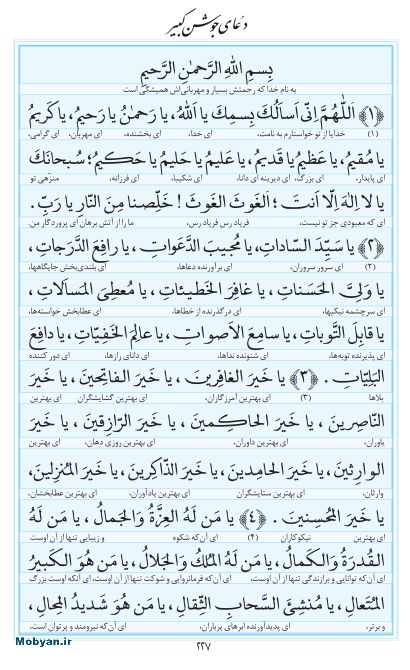 دعای جوشن کبیر
بِسمِ اللهِ الرَّحمٰنِ الرَّحیمِ
به نام خدا که رحمتش بسیار و مهربانی‌اش همیشگی است
﴿۱﴾ اَللّٰهُمَّ اِنّی اَسأَلُکَ بِسمِکَ یا اَللهُ، یا رَحمٰنُ یا رَحیمُ، یا کَریمُ
(۱) خدایا از تو خواستارم به نامت، ای خدا، ای بخشنده، ای مهربان، ای گرامی،
یا مُقیمُ، یا عَظیمُ یا قَدیمُ، یا عَلیمُ یا حَلیمُ یا حَکیمُ؛ سُبحانَکَ
ای پایدار، ای بزرگ، ای دیرینه ای دانا، ای شکیبا، ای فرزانه، منزّهی تو
یا لا اِلٰهَ اِلّا اَنتَ؛ اَلغَوثَ الغَوثَ! خَلِّصنا مِنَ النّارِ یا رَبِّ.
ای که معبودی جز تو نیست، فریاد رس فریاد رس، ما را از آتش برهان ای پروردگار من.
﴿۲﴾ یا سَیِّدَ السّاداتِ، یا مُجیبَ الدَّعَواتِ، یا رافِعَ الدَّرَجاتِ،
(۲) ای سرور سروران، ای برآورنده دعاها، ای بلندی‌بخش جایگاهها،
یا وَلِیَّ الحَسَناتِ، یا غافِرَ الخَطیئاتِ، یا مُعطِیَ المَسأَلاتِ،
ای سرچشمه نیکیها، ای در گذرنده از خطاها، ای عطابخش خواسته‌ها،
یا قابِلَ التَّوباتِ، یا سامِعَ الاَصواتِ، یا عالِمَ الخَفِیّاتِ، یا دافِعَ
ای پذیرنده توبه‌ها، ای شنونده نداها، ای دانای رازها، ای دور کننده
البَلِیّاتِ. ﴿۳﴾ یا خَیرَ الغافِرینَ، یا خَیرَ الفاتِحینَ، یا خَیرَ
بلاها (۳) ای بهترین آمرزگاران، ای بهترین گشایشگران ای بهترین
النّاصِرینَ، یا خَیرَ الحاکِمینَ، یا خَیرَ الرّازِقینَ، یا خَیرَ
یاوران، ای بهترین داوران، ای بهترین روزی دهان، ای بهترین
الوارِثینَ، یا خَیرَ الحامِدینَ، یا خَیرَ الذّاکِرینَ، یا خَیرَ المُنزِلینَ،
وارثان، ای بهترین ستایشگران ای بهترین یادآوران، ای بهترین عطابخشان،
یا خَیرَ المُحسِنینَ. ﴿۴﴾ یا مَن لَهُ العِزَّةُ وَ الجَمالُ، یا مَن لَهُ
ای بهترین نیکوکاران (۴) ای آن‌که شکوه و زیبایی تنها از آن اوست
القُدرَةُ وَ الکَمالُ، یا مَن لَهُ المُلکُ وَ الجَلالُ، یا مَن هُوَ الکَبیرُ
ای آن‌که توانایی و برازندگی تنها از آن اوست، ای آن‌که فرمانروایی و شوکت تنها از آن اوست، ای آنکه اوست بزرگ
المُتَعالِ، یا مُنشِئَ السَّحابِ الثِّقالِ، یا مَن هُوَ شَدیدُ المِحالِ،
و برتر، ای پدیدآورنده ابرهای پرباران، ای آن‌که نیرومند و پرتوان است،
۲۲۷
Mobyan.ir